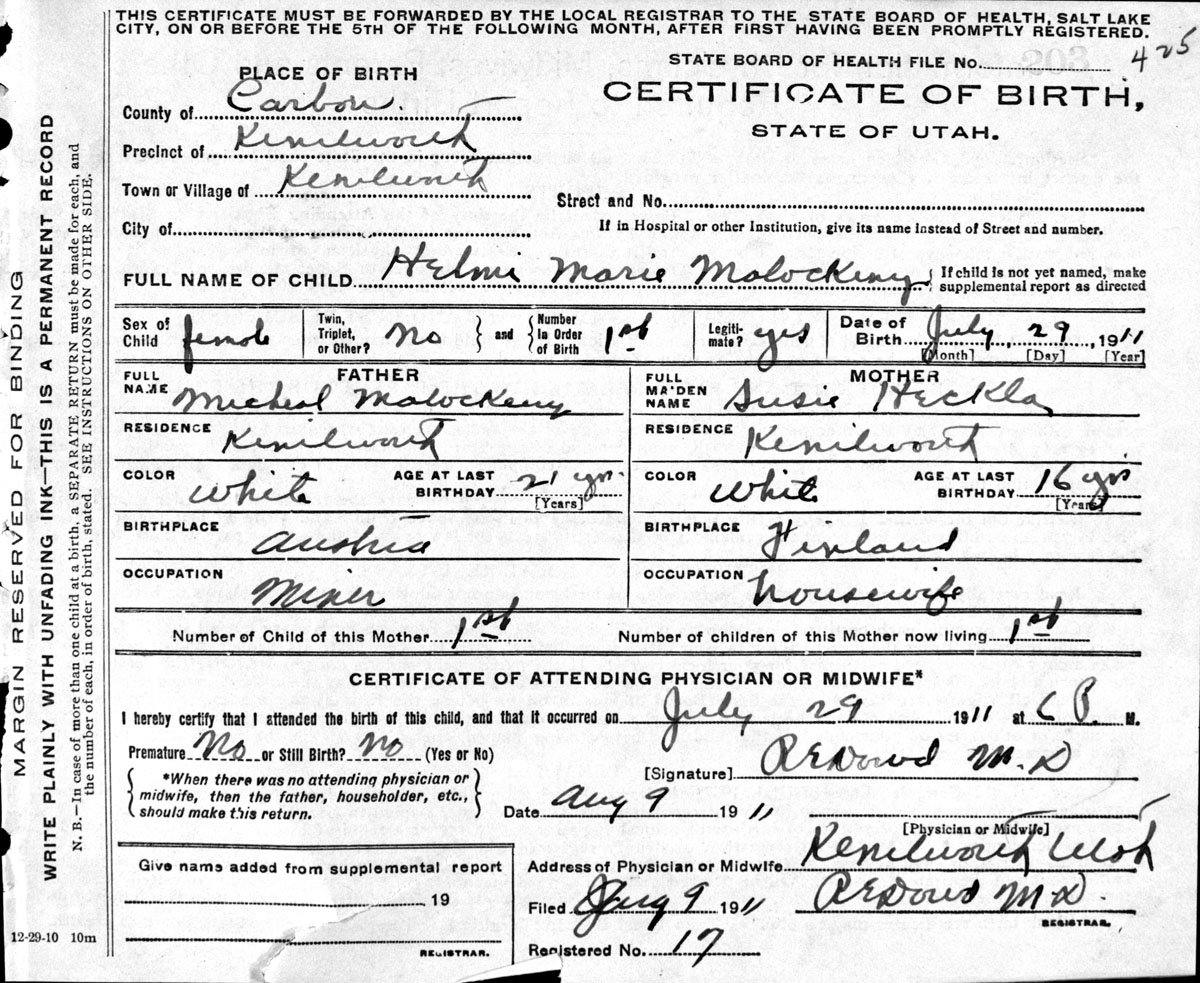 THIS CERTIFICATE MUST BE FORWARDED BY THE LOCAL REGISTRAR TO THE STATE BOARD OF HEALTH, SALT LAKE
CITY, ON OR BEFORE THE 5TH OF THE FOLLOWING MONTH, AFTER FIRST HAVING BEEN PROMPTLY REGISTERED.
STATE BOARD OF HEALTH FILE No. 425
PLACE OF BIRTH
CERTIFICATE OF BIRTH,
STATE OF UTAH.
County of Carbon.
Precinct of Kenilworth
Town or Village of Kenilworth
Street and No.
City of
If in Hospital or other Institution, give its name instead of Street and number.
FULL NAME OF CHILD Helmi Marie Malockeny { If child is not yet named, make
supplemental report as directed
Sex of Child female
Twin, Triplet, or Other? No } and { Number in Order of Birth 1st
Legiti-mate? yes
Date of Birth July 29 1911
[Month] [Day] [Year]
FATHER
FULL NAME Micheal Malockeny
RESIDENCE Kenilworth
COLOR White AGE AT LAST BIRTHDAY 21 yrs.
[Years]
BIRTHPLACE Austria
OCCUPATION Miner
MOTHER
FULL MAIDEN NAME Susie Heckla
RESIDENCE Kenilworth
COLOR White AGE AT LAST BIRTHDAY 16 yrs
[Years]
BIRTHPLACE Finland
OCCUPATION Housewife
Number of Child of this Mother 1st Number of children of this Mother now living 1st
CERTIFICATE OF ATTENDING PHYSICIAN OR MIDWIFE*
I hereby certify that I attended the birth of this child, and that it occurred on July 29 1911 at 6 P. M.
Premature No or Still Birth? No (Yes or No)
{ *When there was no attending physician or
midwife, then the father, householder, etc.,
should make this return. }
[Signature] M.D
Date Aug 9 1911
[Physician or Midwife]
Address of Physician or Midwife Kenilworth Utah
Filed Aug 9 1911 M.D.
REGISTRAR.
Registered No. 17
Give name added from supplemental report
19
REGISTRAR.
12-29-10 10m
MARGIN RESERVED FOR BINDING
WRITE PLAINLY WITH UNFADING INK—THIS IS A PERMANENT RECORD
N. B.—In case of more than one child at a birth, a SEPARATE RETURN must be made for each, and
the number of each, in order of birth, stated. SEE INSTRUCTIONS ON OTHER SIDE.